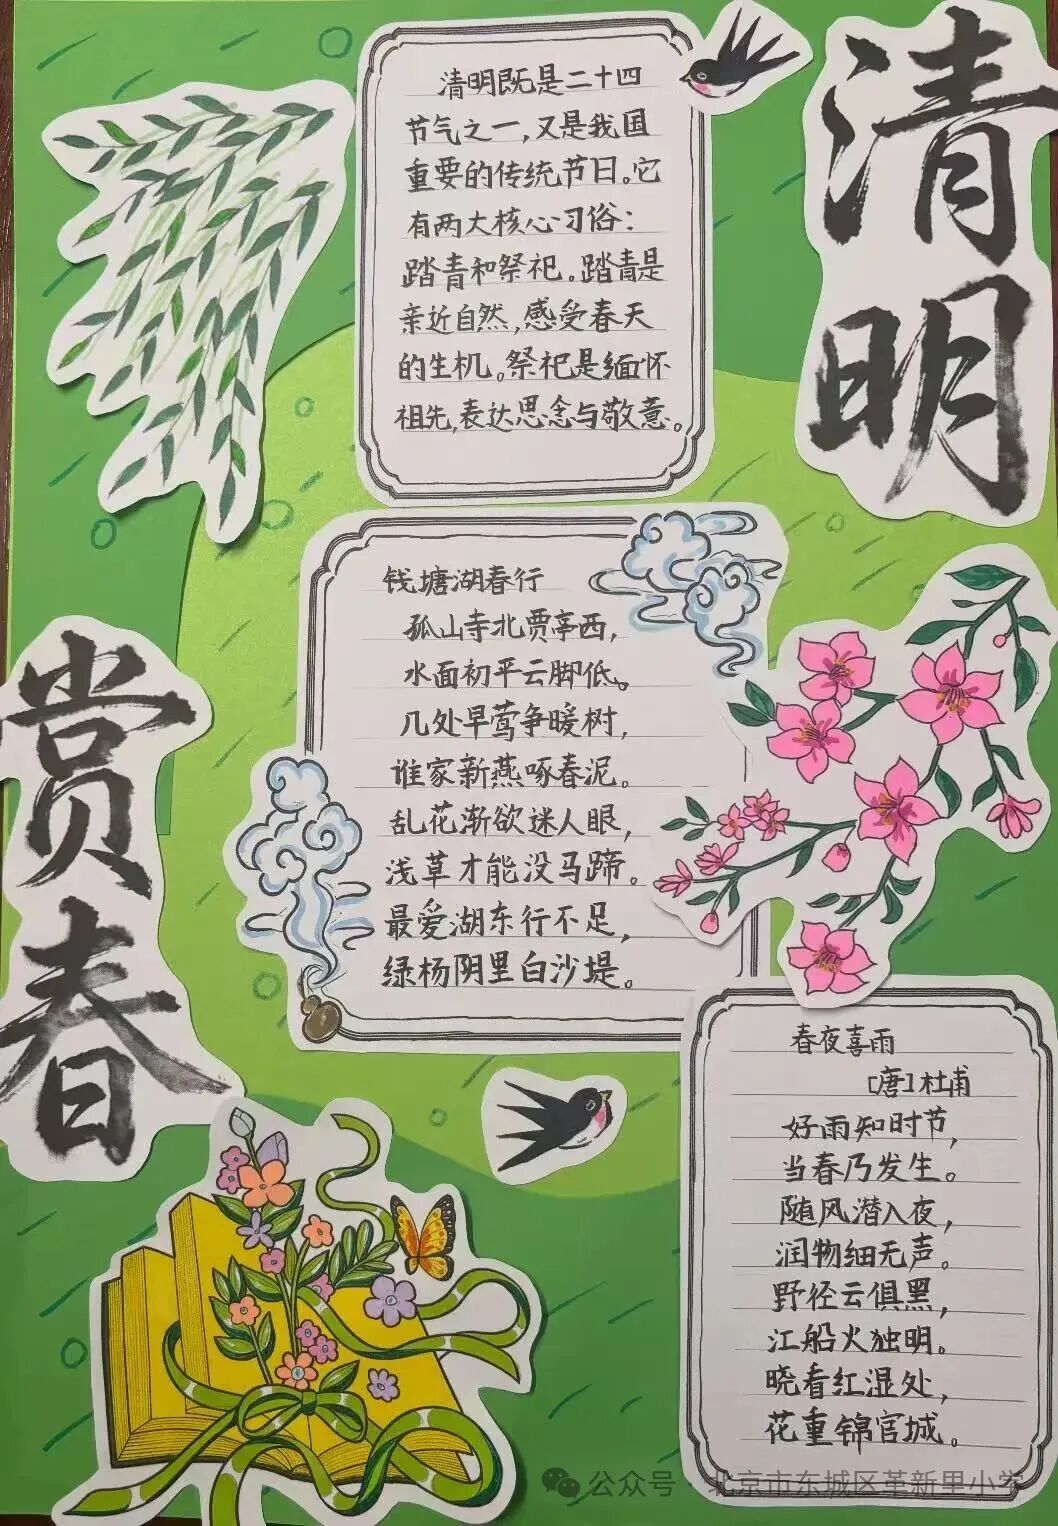 清明
清明既是二十四
节气之一，又是我国
重要的传统节日。它
有两大核心习俗：
踏青和祭祀。踏青是
亲近自然，感受春天
的生机。祭祀是缅怀
祖先，表达思念与敬意。
赏春
钱塘湖春行
孤山寺北贾亭西，
水面初平云脚低。
几处早莺争暖树，
谁家新燕啄春泥。
乱花渐欲迷人眼，
浅草才能没马蹄。
最爱湖东行不足，
绿杨阴里白沙堤。
春夜喜雨
［唐］杜甫
好雨知时节，
当春乃发生。
随风潜入夜，
润物细无声。
野径云俱黑，
江船火独明。
晓看红湿处，
花重锦官城。
公众号·北京市东城区革新里小学